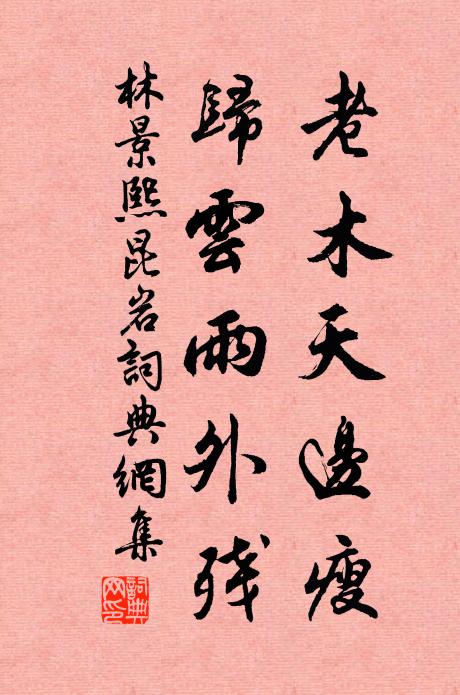 老木天邊瘦
歸雲雨外残
林景熙昆岩詞典網集
詞典網印